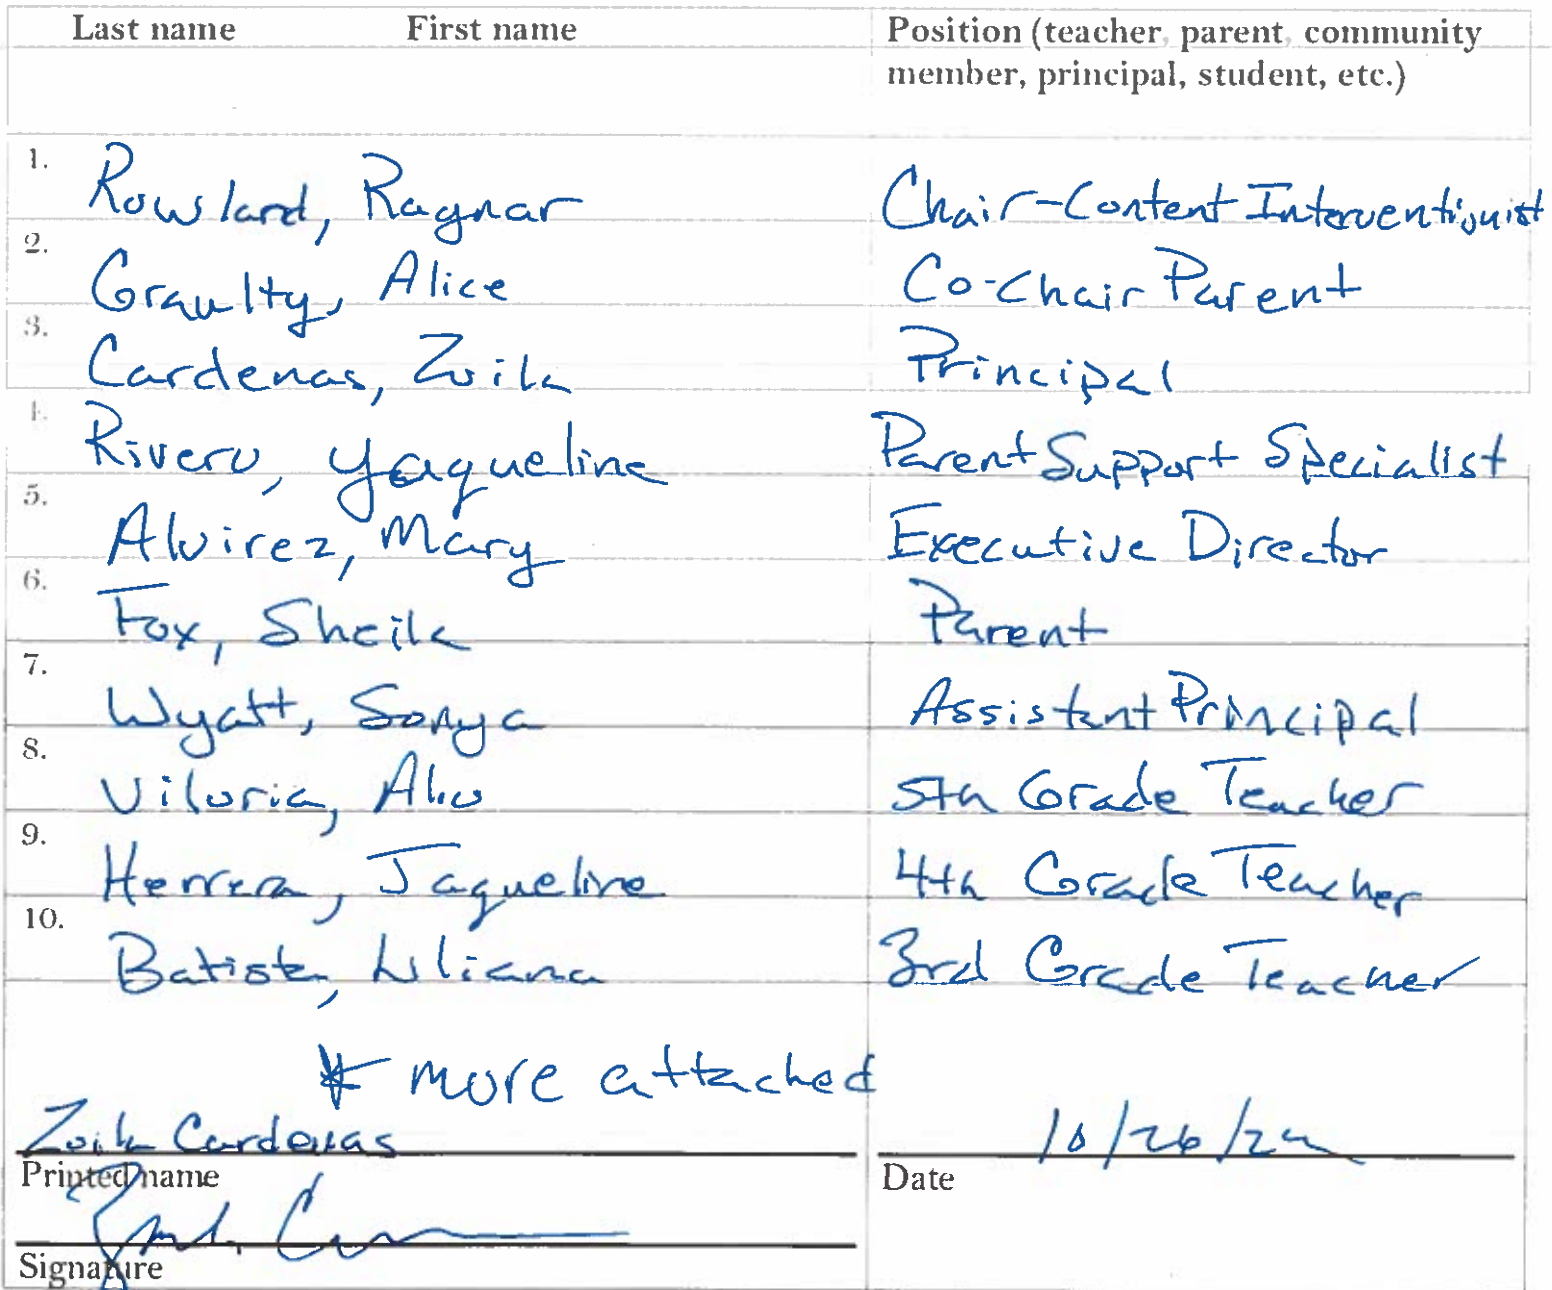 Last name First name Position (teacher, parent, community
member, principal, student, etc.)
1. Rowland, Ragnar Chair-Content Interventionist
2. Graulty, Alice Co-Chair Parent
3. Cardenas, Zoila Principal
4. Rivero, Yaqueline Parent Support Specialist
5. Alvirez, Mary Executive Director
6. Fox, Sheila Parent
7. Wyatt, Sonya Assistant Principal
8. Viloria, 5th Grade Teacher
9. Herrera, Jaqueline 4th Grade Teacher
10. Batista, Liliana 3rd Grade Teacher
* more attached
Zoila Cardenas 10/26/22
Printed name Date
Signature